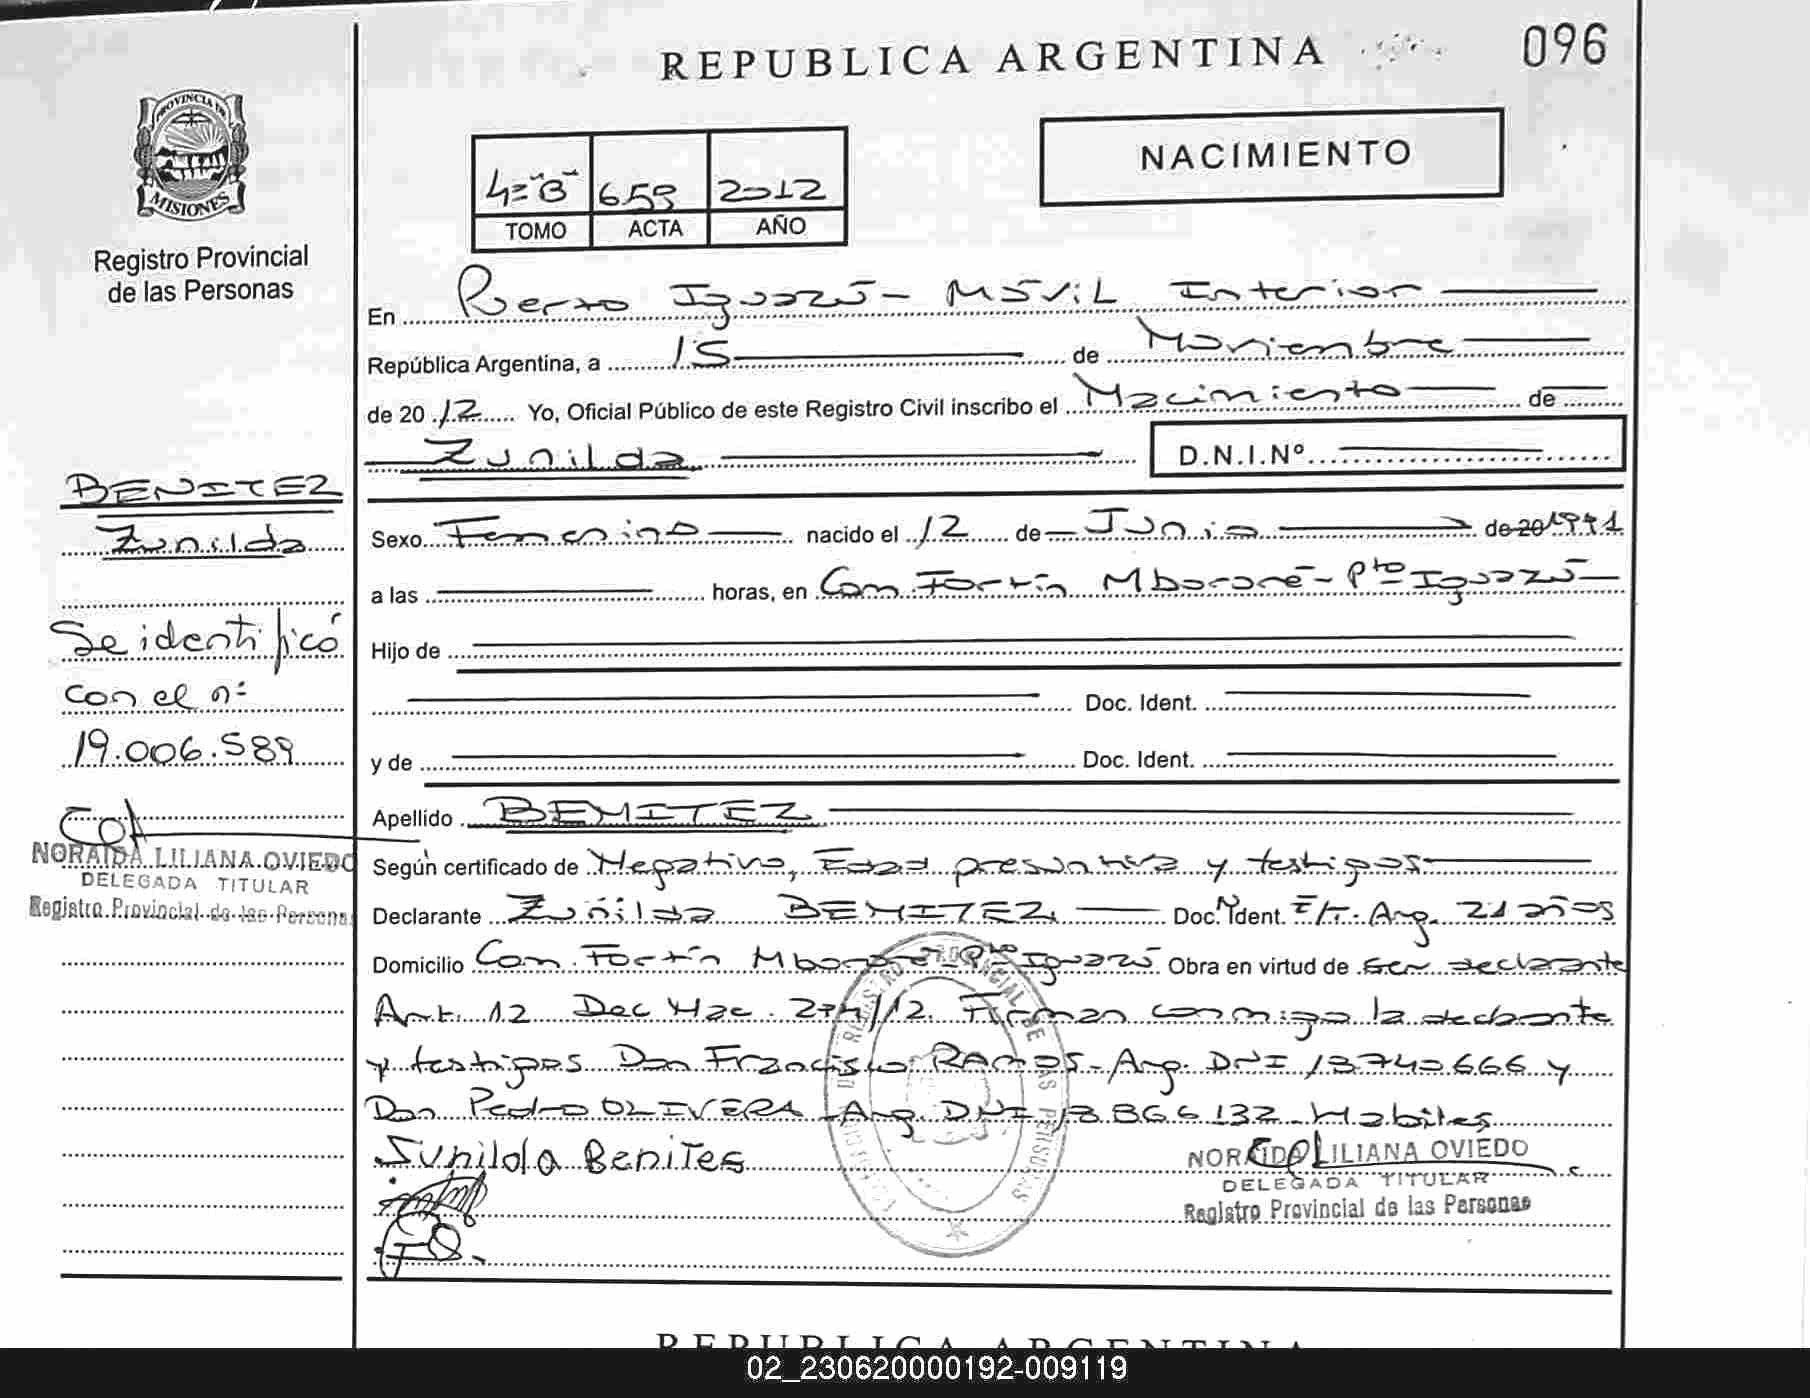 REPUBLICA ARGENTINA
096
PROVINCIA DE
MISIONES
Registro Provincial
de las Personas
4º "B" 659 2012
TOMO ACTA AÑO
NACIMIENTO
En Puerto Iguazú - Móvil Interior
República Argentina, a 15 de Noviembre
de 2012 Yo, Oficial Público de este Registro Civil inscribo el Nacimiento de
Zunilda D.N.I.Nº
Sexo Femenino nacido el 12 de Junio de 20 1991
a las horas, en Com. Fortín Mbororé - Pto Iguazú
Hijo de
Doc. Ident.
y de Doc. Ident.
Apellido BENITEZ
Según certificado de Negativo, Edad presuntiva y testigos
Declarante Zunilda BENITEZ Doc. Ident. Arg. 21 años
Domicilio Com. Fortín Mbororé - Pto Iguazú Obra en virtud de ser declarante
Art. 12 Dec Nac. 274/12. Firman conmigo la declarante
y testigos Don Francisco RAMOS - Arg. DNI 13.740.666 y
Don Pedro OLIVERA - Arg. DNI 18.866.132 - Habiles
Sunilda Benites
NORAIDA LILIANA OVIEDO
DELEGADA TITULAR
Registro Provincial de las Personas
BENITEZ
Zunilda
Se identificó
con el nº
19.006.589
NORAIDA LILIANA OVIEDO
DELEGADA TITULAR
Registro Provincial de las Personas
REPUBLICA ARGENTINA
02_230620000192-009119